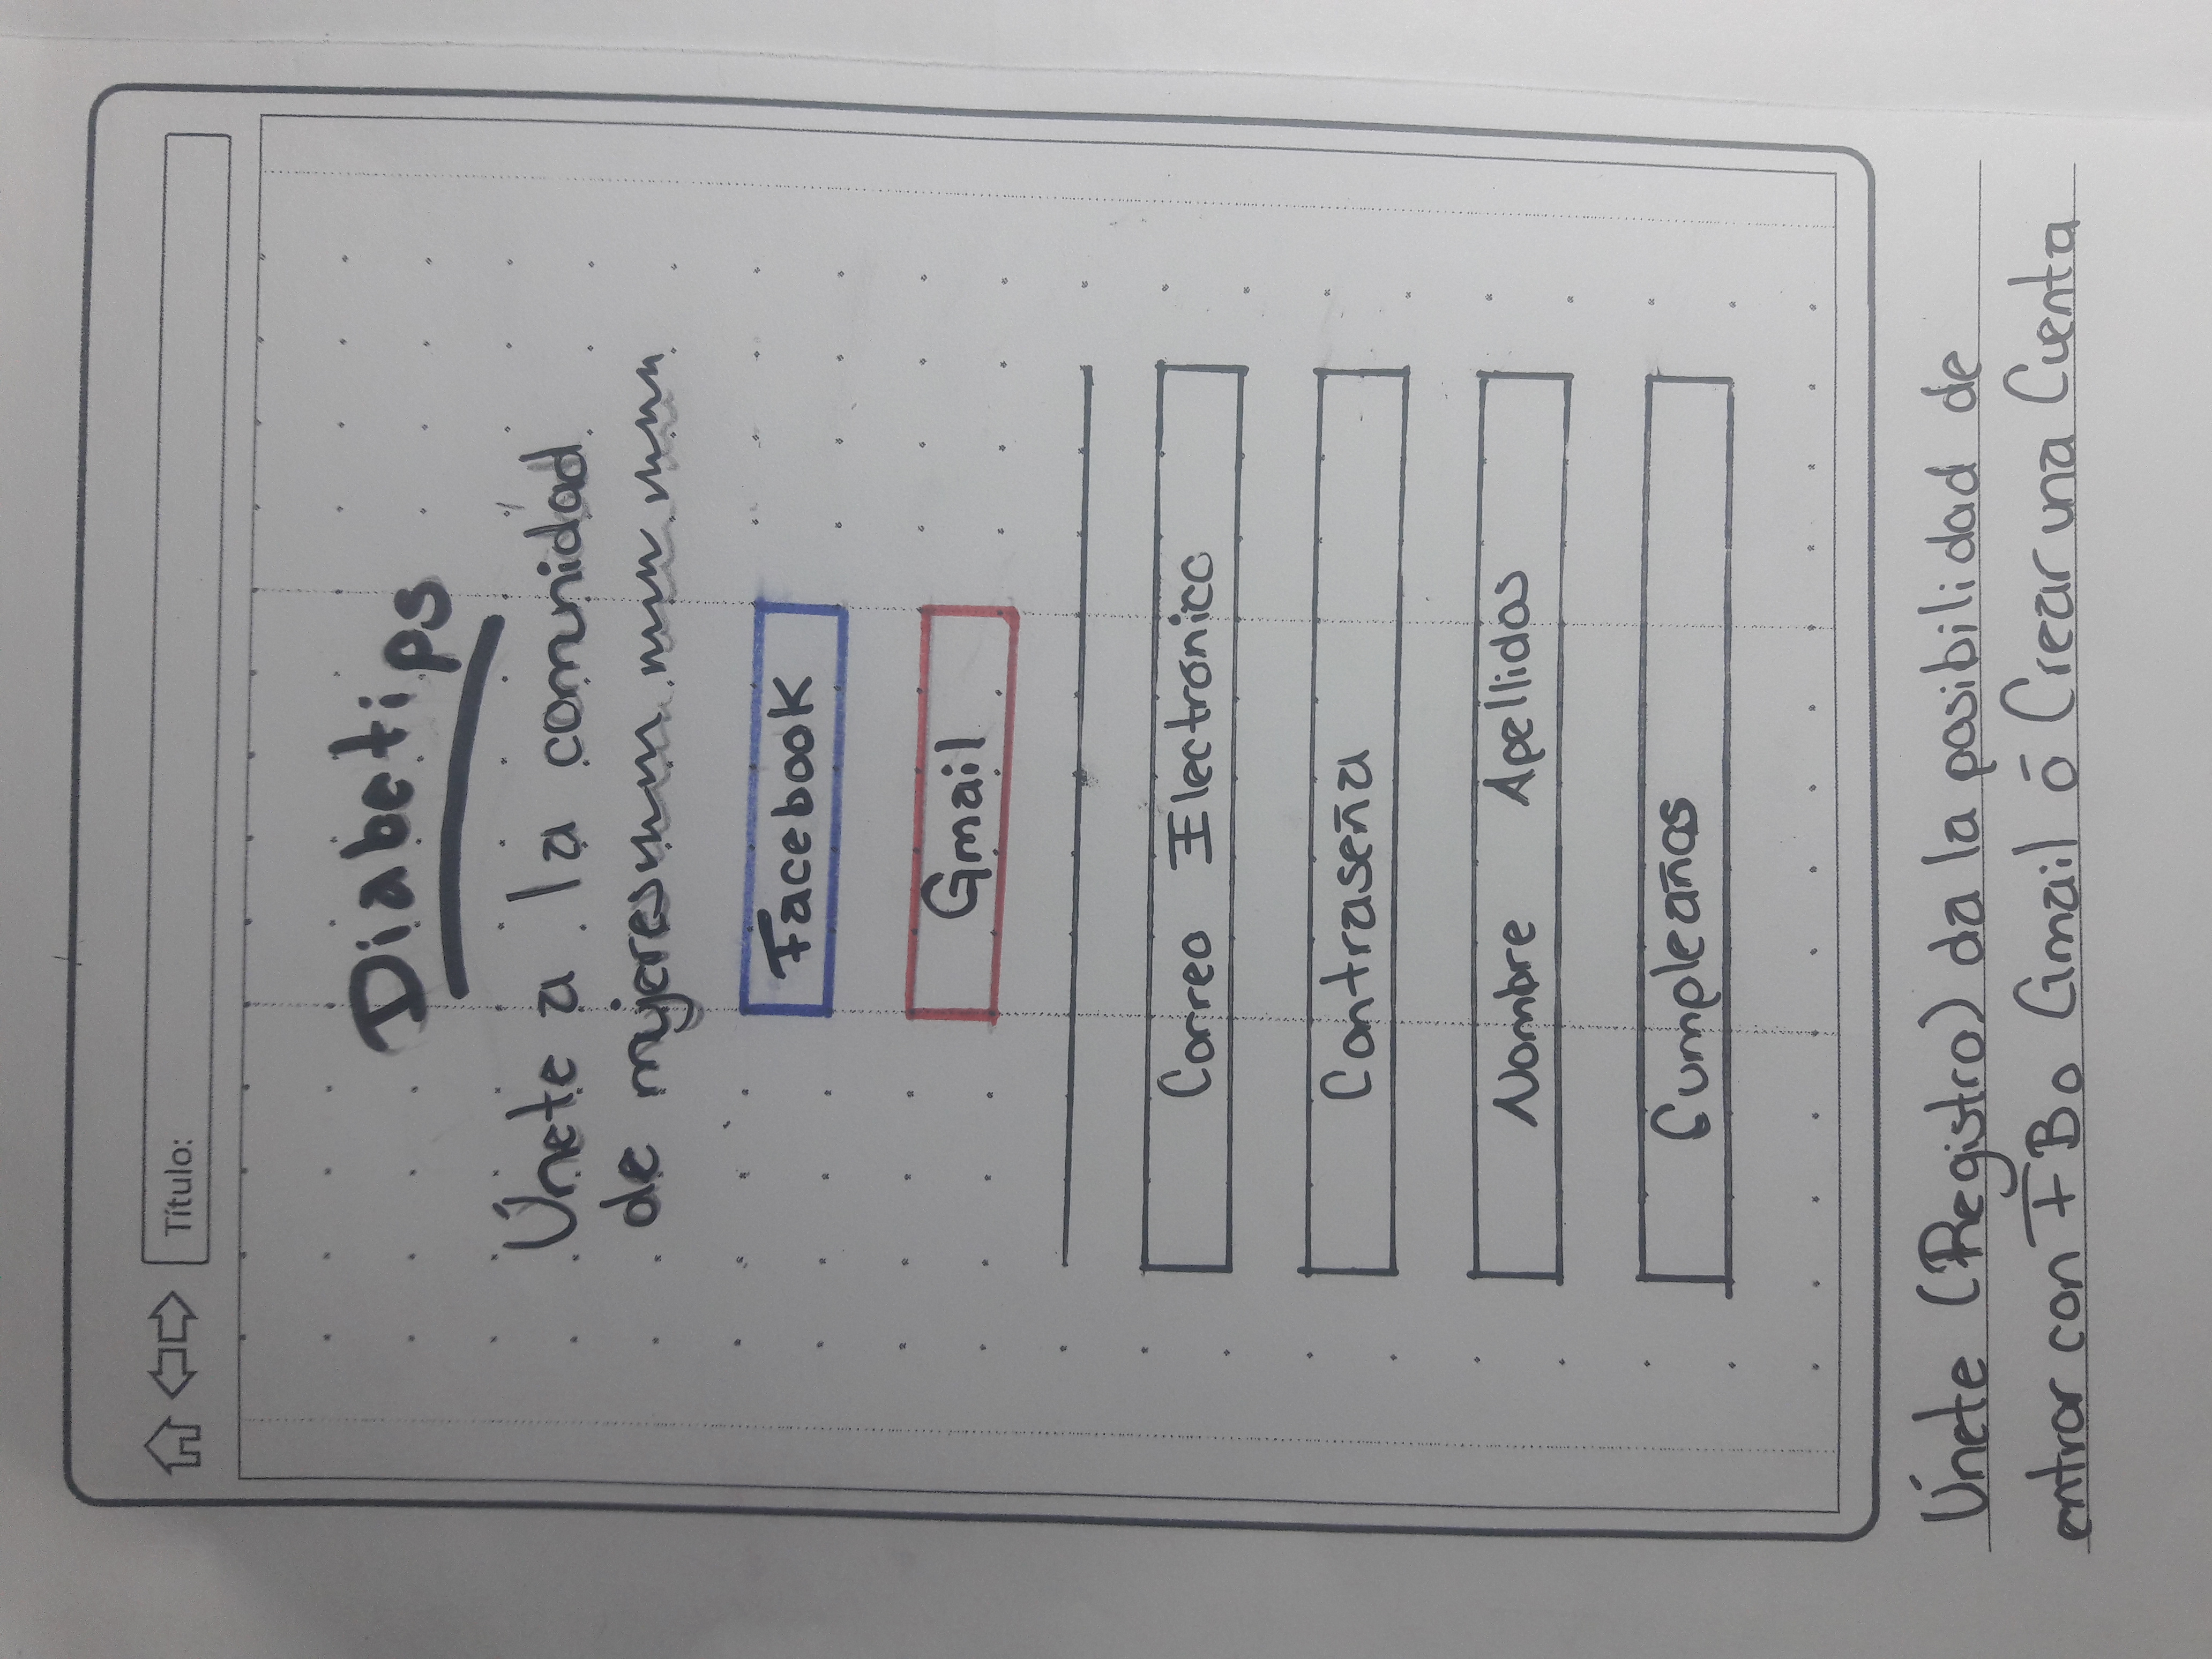 Título:
Diabetips
Únete a la comunidad
de mujeres
Facebook
Gmail
Correo Electrónico
Contraseña
Nombre Apellidos
Cumpleaños
Únete (Registro) da la posibilidad de
entrar con FB o Gmail ó Crear una Cuenta